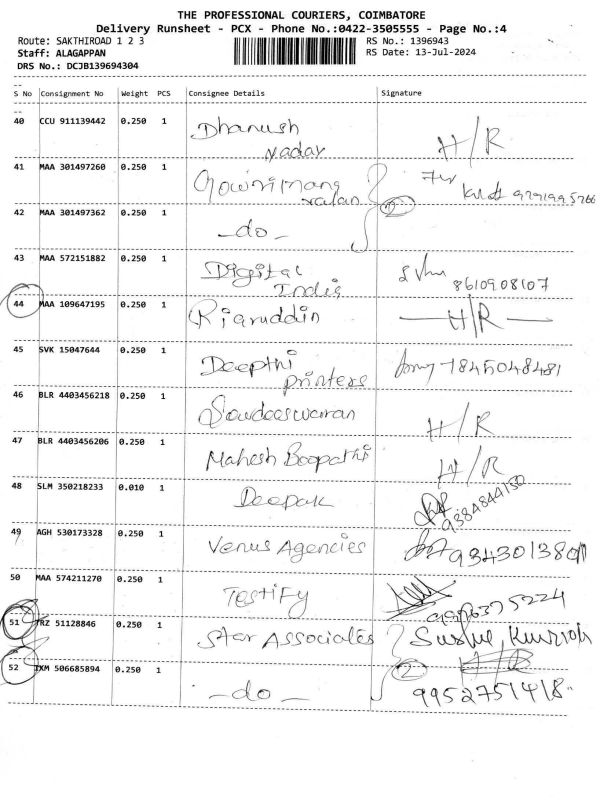 THE PROFESSIONAL COURIERS, COIMBATORE
Delivery Runsheet - PCX - Phone No.:0422-3505555 - Page No.:4
Route: SAKTHIROAD 1 2 3
RS No.: 1396943
Staff: ALAGAPPAN
RS Date: 13-Jul-2024
DRS No.: DCJB139694304
S No Consignment No Weight PCS Consignee Details Signature
40 CCU 911139442 0.250 1 Dhanush H/R
Yadav
41 MAA 301497260 0.250 1 Gowri Mang
42 MAA 301497362 0.250 1 -do- 2
43 MAA 572151882 0.250 1 Digital
India 8610908107
44 MAA 109647195 0.250 1 Riaruddin H/R
45 SVK 15047644 0.250 1 Deepthi 7845048481
Printers
46 BLR 4403456218 0.250 1 H/R
47 BLR 4403456206 0.250 1 Mahesh Boopathi H/R
48 SLM 350218233 0.010 1 Deepak 9384844150
49 AGH 530173328 0.250 1 Venus Agencies
50 MAA 574211270 0.250 1 Testify
51 TRZ 51128846 0.250 1 Star Associates
52 IXM 506685894 0.250 1 -do- 2 H/R
9952751418